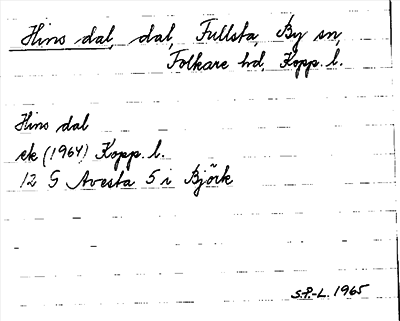 Hins dal, dal, Fullsta, By sn,
Folkare hd, Kopp. l.
Hins dal
ek (1964) Kopp. l.
12 G Avesta 5 i Björk
S.P.-L. 1965